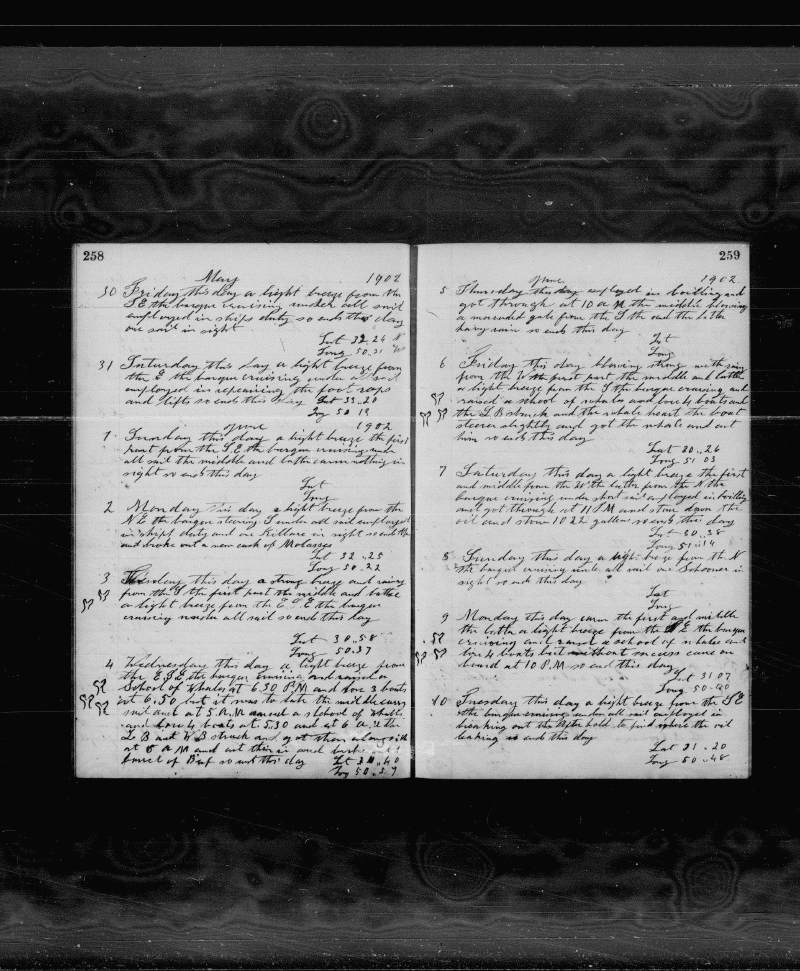 258
May 1902
30 Friday this day a light breeze from N
S E the barque cruising under all sail
employed in ships duty so ends this day
one sail in sight
Lat 32.24 N
Long 50.31
31 Saturday this day a light breeze from
the E the barque cruising under all sail
employed in repairing the foot rops
and lifts so ends this day Lat 33.20
Log 50 19
June 1902
1 Sunday this day a light breeze the first
part from the S.E. the barque cruising under
all sail the middle and latter carm nothing in
sight so ends this day
Lat
Long
2 Monday this day a light breeze from the
N E the barque steering S under all sail employed
in ships duty and one Killore in sight so ends
and broke out a new cask of Molasses
Lat 32.25
Long 50.22
3 Tuesday this day a strong breeze and rainy
from the S the first part the middle and latter
a light breeze from the E S E the barque
cruising under all sail so ends this day
Lat 30.58
Long 50.37
4 Wednesday this day a light breeze from
the E S E the barque cruising and raised a
School of Whales at 6.30 P.M and lore 3 boats
at 6.50 but it was to late the middle carm
and at 5 A.M raised a school of whales
and lore 4 boats at 5.30 and at 6 A.M the
L B and W B struck and got them alongside
at 8 A M and cut them in and
barrel of Beef so ends this day Lt 30.40
Log 50.37
259
June 1902
5 Thursday this day employed in boilling and
got through at 10 a M the middle blowing
a moradet gale from the S the end the latter
havy rain so ends this day
Lat
Long
6 Friday this day blowing strong with rain
from the W the first part the middle and latter
a light breeze from the S the barque cruising and
raised a school of whales and lore 4 boats and
the L B struck and the whale heart the boat
steerer slightly and got the whale and cut
him so ends this day
Lat 30.26
Long 51 03
7 Saturday this day a light breeze the first
and middle from the W the latter from the N the
barque cruising under short sail employed in boilling
and got through at 11 P.M and stow down the
oil and stow 1022 gallons so ends this day
Lat 30.38
Long 51.14
8 Sunday this day a light breeze from the N
the barque cruising under all sail one Schooner in
sight so ends this day
Lat
Long
9 Monday this day carm the first and middle
the latter a light breeze from the S E the barque
cruising and raised a school of whales and
lore 4 boats but without success came on
board at 10 P.M so ends this day
Lat 31 07
Long 50.40
10 Tuesday this day a light breeze from the S E
the barque cruising under all sail employed in
breaking out the After hold to find where the oil
leaking so ends this day
Lat 31.20
Long 50.48